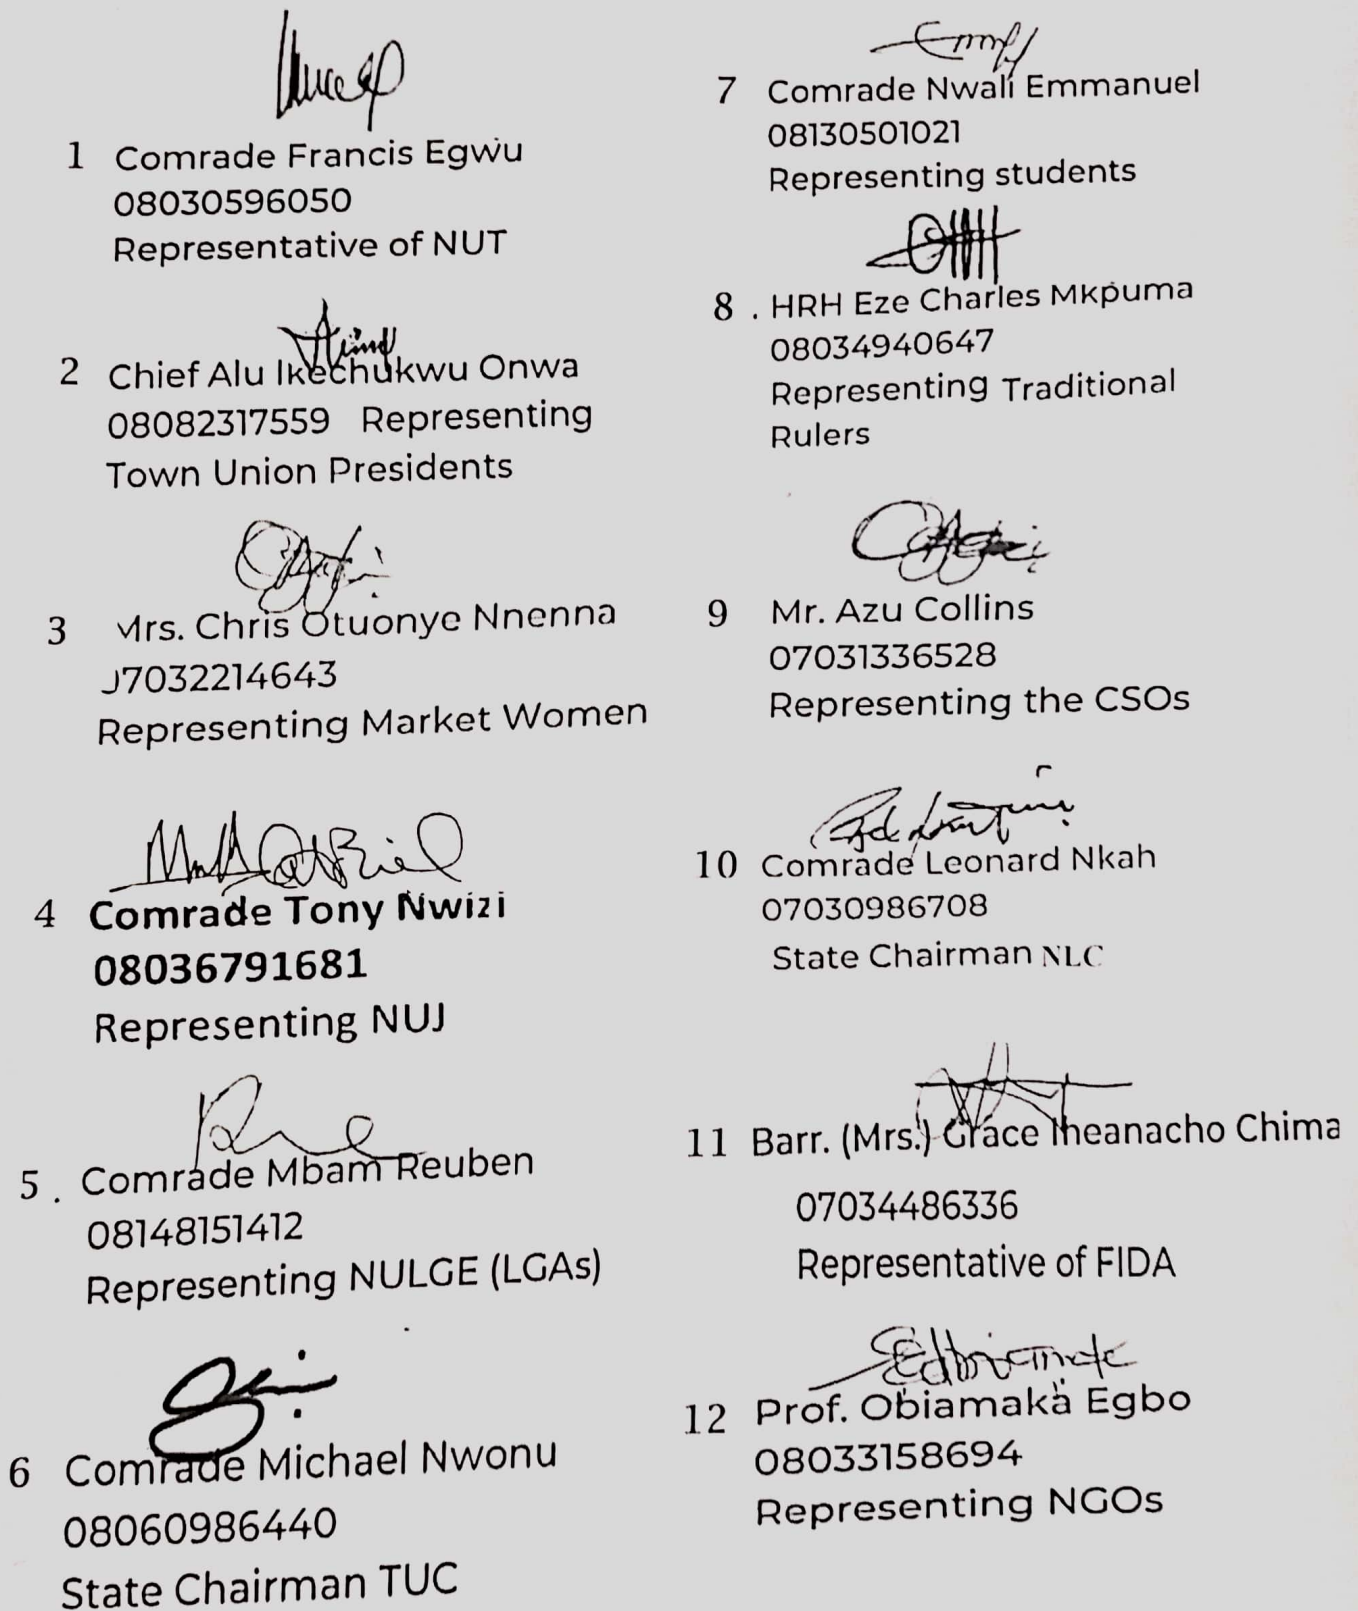 1 Comrade Francis Egwu
08030596050
Representative of NUT
2 Chief Alu Ikechukwu Onwa
08082317559 Representing
Town Union Presidents
3 Mrs. Chris Otuonye Nnenna
07032214643
Representing Market Women
4 Comrade Tony Nwizi
08036791681
Representing NUJ
5. Comrade Mbam Reuben
08148151412
Representing NULGE (LGAs)
6 Comrade Michael Nwonu
08060986440
State Chairman TUC
7 Comrade Nwali Emmanuel
08130501021
Representing students
8. HRH Eze Charles Mkpuma
08034940647
Representing Traditional
Rulers
9 Mr. Azu Collins
07031336528
Representing the CSOs
10 Comrade Leonard Nkah
07030986708
State Chairman NLC
11 Barr. (Mrs.) Grace Iheanacho Chima
07034486336
Representative of FIDA
12 Prof. Obiamaka Egbo
08033158694
Representing NGOs